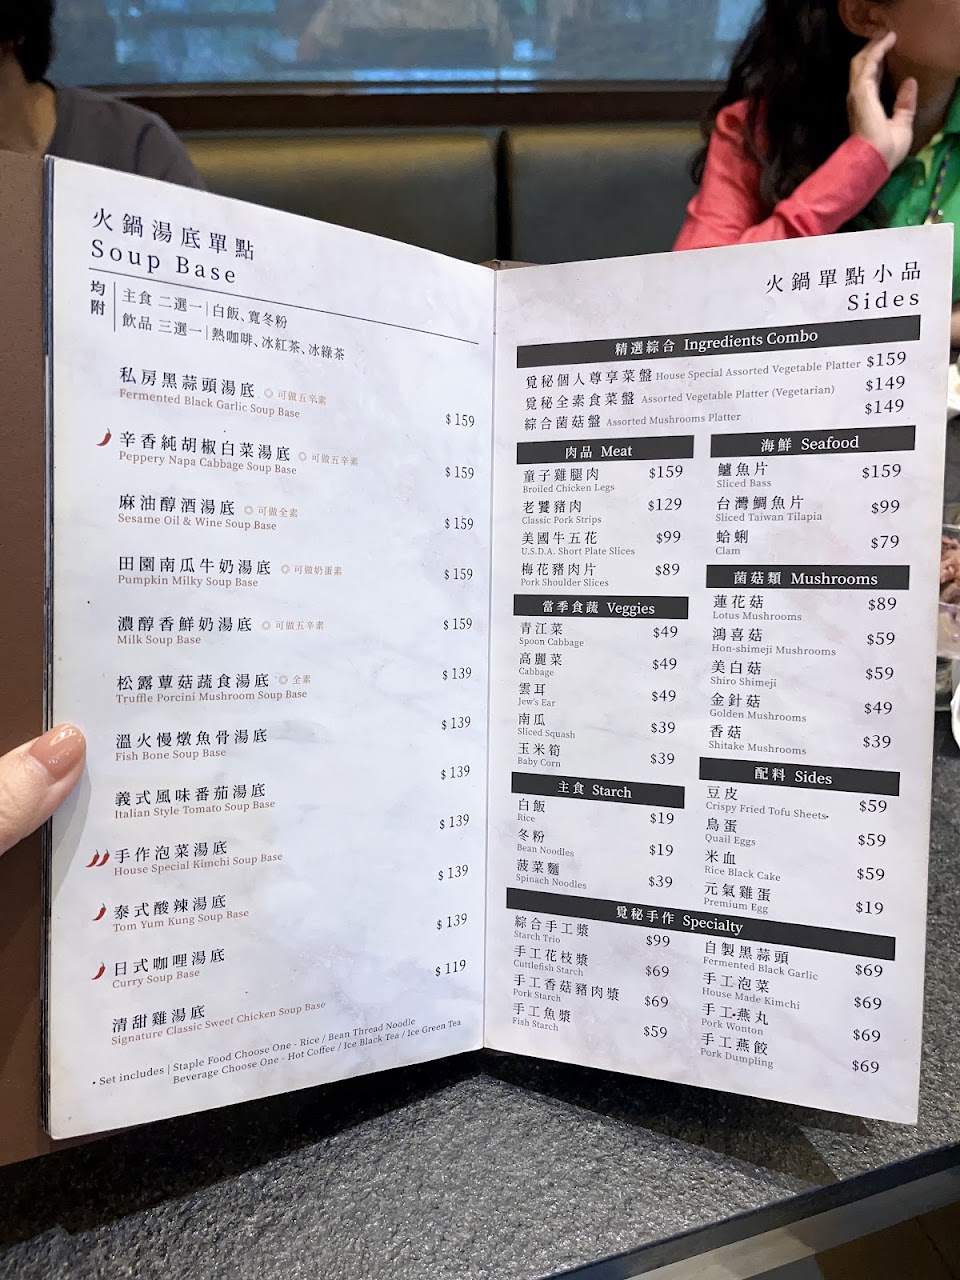 火鍋湯底單點
Soup Base
均附
主食 二選一｜白飯、寬冬粉
飲品 三選一｜熱咖啡、冰紅茶、冰綠茶
私房黑蒜頭湯底 ◎ 可做五辛素
Fermented Black Garlic Soup Base
$ 159
辛香純胡椒白菜湯底 ◎ 可做五辛素
Peppery Napa Cabbage Soup Base
$ 159
麻油醇酒湯底 ◎ 可做全素
Sesame Oil & Wine Soup Base
$ 159
田園南瓜牛奶湯底 ◎ 可做奶蛋素
Pumpkin Milky Soup Base
$ 159
濃醇香鮮奶湯底 ◎ 可做五辛素
Milk Soup Base
$ 159
松露蕈菇蔬食湯底 ◎ 全素
Truffle Porcini Mushroom Soup Base
$ 139
溫火慢燉魚骨湯底
Fish Bone Soup Base
$ 139
義式風味番茄湯底
Italian Style Tomato Soup Base
$ 139
手作泡菜湯底
House Special Kimchi Soup Base
$ 139
泰式酸辣湯底
Tom Yum Kung Soup Base
$ 139
日式咖哩湯底
Curry Soup Base
$ 139
清甜雞湯底
Signature Classic Sweet Chicken Soup Base
$ 119
• Set includes | Staple Food Choose One - Rice / Bean Thread Noodle
Beverage Choose One - Hot Coffee / Ice Black Tea / Ice Green Tea
火鍋單點小品
Sides
精選綜合 Ingredients Combo
覓秘個人尊享菜盤 House Special Assorted Vegetable Platter $159
覓秘全素食菜盤 Assorted Vegetable Platter (Vegetarian) $149
綜合菌菇盤 Assorted Mushrooms Platter $149
肉品 Meat
童子雞腿肉 $159
Broiled Chicken Legs
老饕豬肉 $129
Classic Pork Strips
美國牛五花 $99
U.S.D.A. Short Plate Slices
梅花豬肉片 $89
Pork Shoulder Slices
當季食蔬 Veggies
青江菜 $49
Spoon Cabbage
高麗菜 $49
Cabbage
雲耳 $49
Jew's Ear
南瓜 $39
Sliced Squash
玉米筍 $39
Baby Corn
主食 Starch
白飯 $19
Rice
冬粉 $19
Bean Noodles
菠菜麵 $39
Spinach Noodles
海鮮 Seafood
鱸魚片 $159
Sliced Bass
台灣鯛魚片 $99
Sliced Taiwan Tilapia
蛤蜊 $79
Clam
菌菇類 Mushrooms
蓮花菇 $89
Lotus Mushrooms
鴻喜菇 $59
Hon-shimeji Mushrooms
美白菇 $59
Shiro Shimeji
金針菇 $49
Golden Mushrooms
香菇 $39
Shitake Mushrooms
配料 Sides
豆皮 $59
Crispy Fried Tofu Sheets
鳥蛋 $59
Quail Eggs
米血 $59
Rice Black Cake
元氣雞蛋 $19
Premium Egg
覓秘手作 Specialty
綜合手工漿 $99
Starch Trio
手工花枝漿 $69
Cuttlefish Starch
手工香菇豬肉漿 $69
Pork Starch
手工魚漿 $59
Fish Starch
自製黑蒜頭 $69
Fermented Black Garlic
手工泡菜 $69
House Made Kimchi
手工燕丸 $69
Pork Wonton
手工燕餃 $69
Pork Dumpling